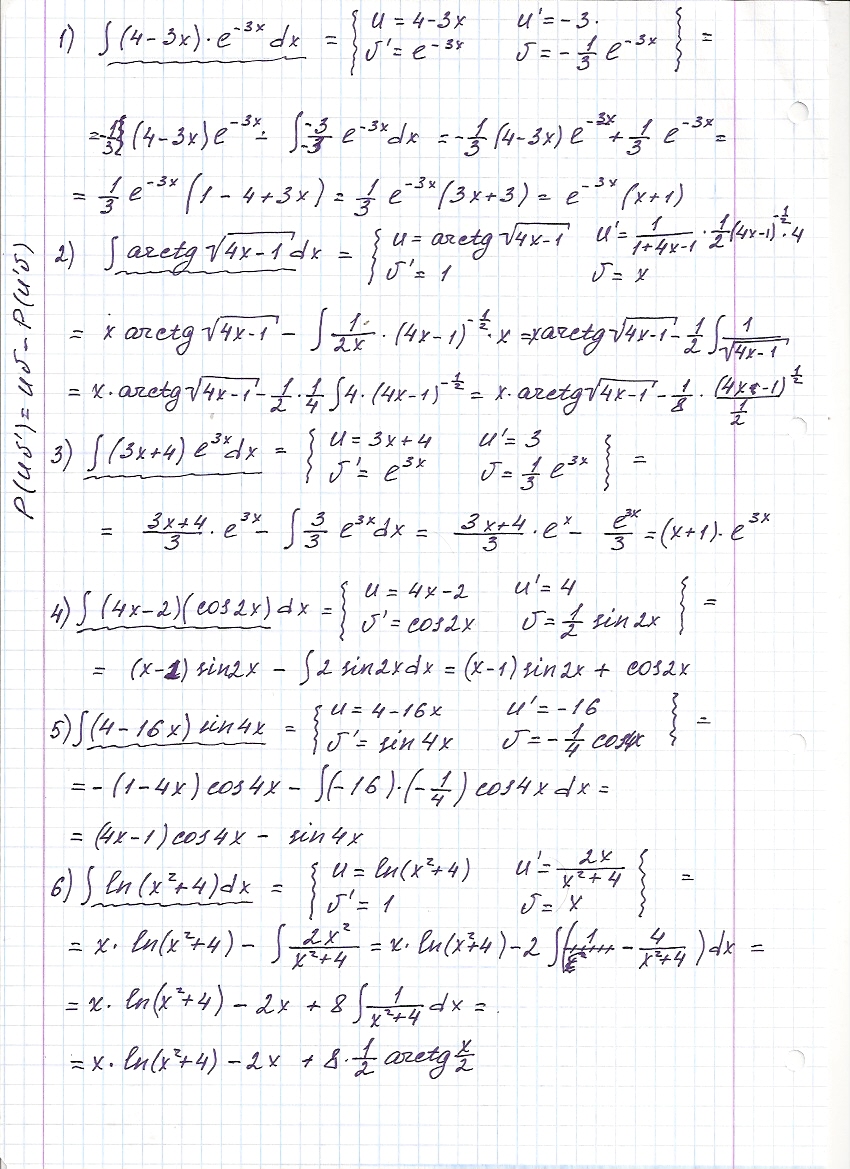 1) ∫ (4-3x)·e^{-3x} dx = { u = 4-3x u' = -3·
v' = e^{-3x} v = -1/3 e^{-3x} } =
= -1/3 (4-3x) e^{-3x} - ∫ -3/-3 e^{-3x} dx = -1/3 (4-3x) e^{-3x} + 1/3 e^{-3x} =
= 1/3 e^{-3x} (1-4+3x) = 1/3 e^{-3x} (3x+3) = e^{-3x} (x+1)
2) ∫ arctg √(4x-1) dx = { u = arctg √(4x-1) u' = 1/(1+4x-1) · 1/2 (4x-1)^{-1/2} · 4
v' = 1 v = x
= x arctg √(4x-1) - ∫ 1/2x · (4x-1)^{-1/2} · x = x arctg √(4x-1) - 1/2 ∫ 1/√(4x-1)
= x · arctg √(4x-1) - 1/2 · 1/4 ∫ 4 · (4x-1)^{-1/2} = x · arctg √(4x-1) - 1/8 · (4x-1)^{1/2} / 1/2
3) ∫ (3x+4) e^{3x} dx = { u = 3x+4 u' = 3
v' = e^{3x} v = 1/3 e^{3x} } =
= (3x+4)/3 · e^{3x} - ∫ 3/3 e^{3x} dx = (3x+4)/3 · e^x - e^{3x}/3 = (x+1) · e^{3x}
4) ∫ (4x-2)(cos2x) dx = { u = 4x-2 u' = 4
v' = cos2x v = 1/2 sin 2x } =
= (x-1) sin2x - ∫ 2 sin2x dx = (x-1) sin2x + cos2x
5) ∫ (4-16x) sin4x = { u = 4-16x u' = -16
v' = sin4x v = -1/4 cos4x } =
= -(1-4x) cos4x - ∫ (-16)·(-1/4) cos4x dx =
= (4x-1) cos4x - sin4x
6) ∫ ln(x²+4) dx = { u = ln(x²+4) u' = 2x/(x²+4)
v' = 1 v = x } =
= x · ln(x²+4) - ∫ 2x²/(x²+4) = x · ln(x²+4) - 2 ∫ ( - 4/(x²+4) ) dx =
= x · ln(x²+4) - 2x + 8 ∫ 1/(x²+4) dx =
= x · ln(x²+4) - 2x + 8 · 1/2 arctg x/2
P(uv') = uv - P(u'v)